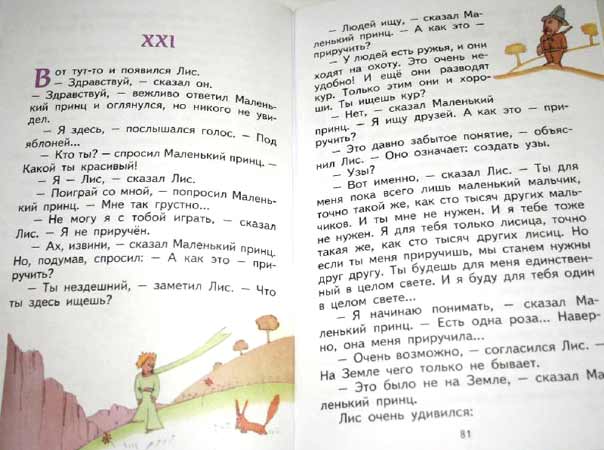 XXI
Вот тут-то и появился Лис.
— Здравствуй, — сказал он.
— Здравствуй, — вежливо ответил Малень-
кий принц и оглянулся, но никого не уви-
дел.
— Я здесь, — послышался голос. — Под
яблоней...
— Кто ты? — спросил Маленький принц. —
Какой ты красивый!
— Я — Лис, — сказал Лис.
— Поиграй со мной, — попросил Малень-
кий принц. — Мне так грустно...
— Не могу я с тобой играть, — сказал
Лис. — Я не приручён.
— Ах, извини, — сказал Маленький принц.
Но, подумав, спросил: — А как это — при-
ручить?
— Ты нездешний, — заметил Лис. — Что
ты здесь ищешь?
— Людей ищу, — сказал Ма-
ленький принц. — А как это —
приручить?
— У людей есть ружья, и они
ходят на охоту. Это очень не-
удобно! И ещё они разводят
кур. Только этим они и хоро-
ши. Ты ищешь кур?
— Нет, — сказал Маленький
принц. — Я ищу друзей. А как это — при-
ручить?
— Это давно забытое понятие, — объяс-
нил Лис. — Оно означает: создать узы.
— Узы?
— Вот именно, — сказал Лис. — Ты для
меня пока всего лишь маленький мальчик,
точно такой же, как сто тысяч других маль-
чиков. И ты мне не нужен. И я тебе тоже
не нужен. Я для тебя только лисица, точно
такая же, как сто тысяч других лисиц. Но
если ты меня приручишь, мы станем нужны
друг другу. Ты будешь для меня единствен-
ный в целом свете. И я буду для тебя один
в целом свете...
— Я начинаю понимать, — сказал Ма-
ленький принц. — Есть одна роза... Навер-
но, она меня приручила...
— Очень возможно, — согласился Лис. —
На Земле чего только не бывает.
— Это было не на Земле, — сказал Ма-
ленький принц.
Лис очень удивился:
81